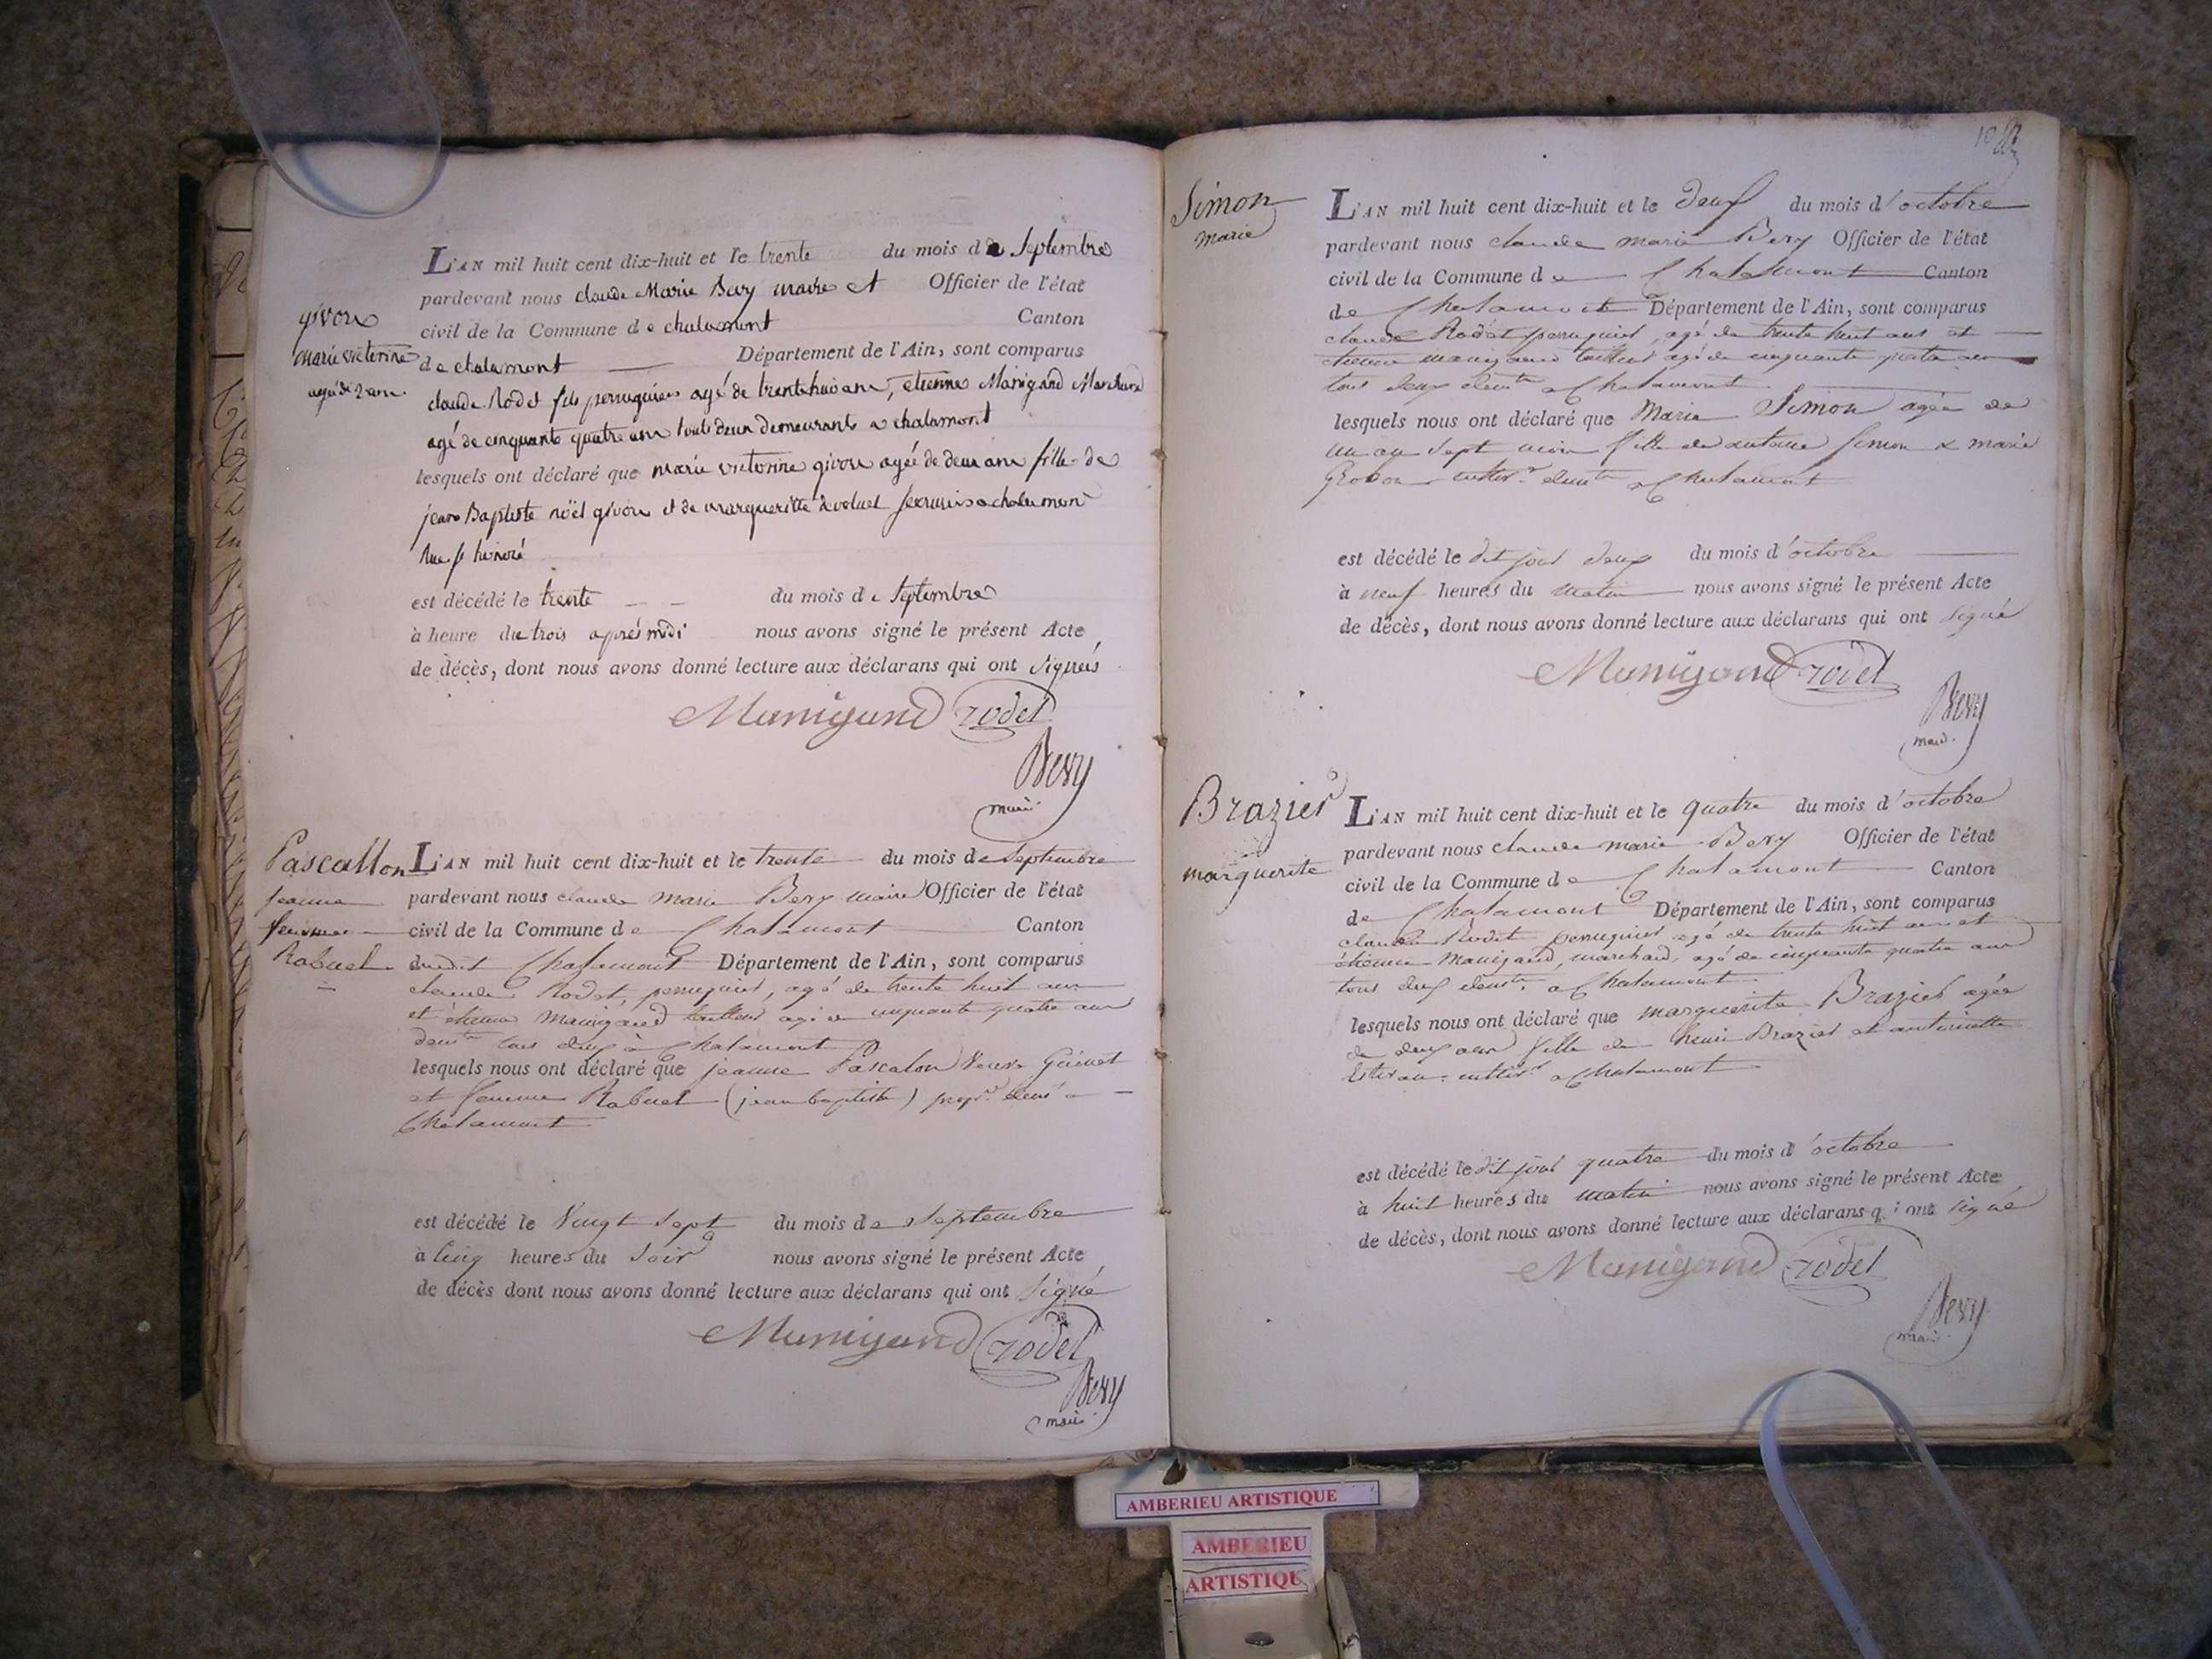 givon
marie victorine
agé de 2 ans
L'AN mil huit cent dix-huit et le trente du mois de Septembre
pardevant nous claude Marie Bevy maire et Officier de l'état
civil de la Commune de chalamont Canton
de chalamont Département de l'Ain, sont comparus
claude Rodet fils perruquier agé de trente huit ans, etienne Manigand Marchand
agé de cinquante quatre ans touts deux demeurants a chalamont
lesquels ont déclaré que marie victorine givon agée de deux ans fille de
jean Baptiste noël givon et de margueritte devoluet serrurier a chalamont
Rue st honoré
est décédé le trente du mois de Septembre
à heure de trois après midi nous avons signé le présent Acte
de décès, dont nous avons donné lecture aux déclarans qui ont signés
Manigand rodet
Bevy
maire
Pascallon
jeanne
femme
Rabuel
L'AN mil huit cent dix-huit et le trente du mois de Septembre
pardevant nous claude marie Bevy maire Officier de l'état
civil de la Commune de Chalamont Canton
dudit Chalamont Département de l'Ain, sont comparus
claude Rodet, perruquier, agé de trente huit ans
et etienne Manigand tailleur agé de cinquante quatre ans
demts tous deux à Chalamont
lesquels nous ont déclaré que jeanne Pascalon Veuve Guinet
et femme Rabuel (jean baptiste) propre demt a
Chalamont
est décédé le Vingt Sept du mois de Septembre
à Cinq heures du Soir nous avons signé le présent Acte
de décès dont nous avons donné lecture aux déclarans qui ont Signé
Manigand rodet
Bevy
maire
Simon
Marie
L'AN mil huit cent dix-huit et le deux du mois d'octobre
pardevant nous claude marie Bevy Officier de l'état
civil de la Commune de Chalamont Canton
de Chalamont Département de l'Ain, sont comparus
claude Rodet perruquier, agé de trente huit ans et
etienne manigand tailleur agé de cinquante quatre ans
tous deux demts a Chalamont
lesquels nous ont déclaré que Marie Simon agée de
un an sept mois fille de antoine Simon & marie
Grobon cultivr demts a Chalamont
est décédé le dit jour deux du mois d'octobre
à neuf heures du matin nous avons signé le présent Acte
de décès, dont nous avons donné lecture aux déclarans qui ont signé
Manigand rodet
Bevy
maire
Brazier
marguerite
L'AN mil huit cent dix-huit et le quatre du mois d'octobre
pardevant nous claude marie Bevy Officier de l'état
civil de la Commune de Chalamont Canton
de Chalamont Département de l'Ain, sont comparus
claude Rodet perruquier agé de trente huit ans et
étienne Manigand, marchand, agé de cinquante quatre ans
tous deux demts a Chalamont
lesquels nous ont déclaré que marguerite Brazier agée
de deux ans fille de henri Brazier et antoinette
cultivr a Chalamont
est décédé le dit jour quatre du mois d'octobre
à huit heures du matin nous avons signé le présent Acte
de décès, dont nous avons donné lecture aux déclarans qui ont signé
Manigand rodet
Bevy
maire
AMBERIEU ARTISTIQUE
AMBERIEU
ARTISTIQU